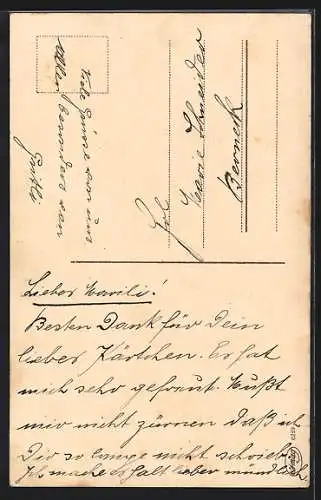 Lieber Marili!
Besten Dank für Dein
lieber Kärtchen. Er hat
mich sehr gefreut. Mußt
mir nicht zürnen daß ich
Dir so lange nicht schrieb.
Ich mache es halt lieber mündlich.
Viele Grüsse von uns
Allen besonders von
Gritli
Frl.
Marie Schneider
Berneck